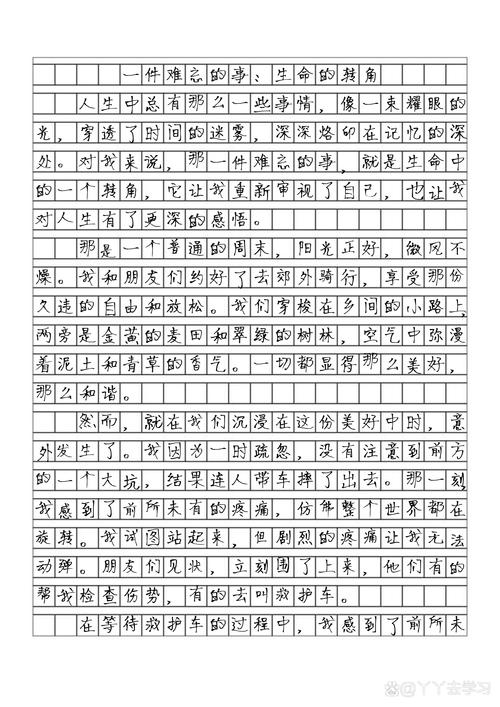 一件难忘的事：生命的转角
人生中总有那么一些事情，像一束耀眼的
光，穿透了时间的迷雾，深深烙印在记忆的深
处。对我来说，那一件难忘的事，就是生命中
的一个转角，它让我重新审视了自己，也让我
对人生有了更深的感悟。
那是一个普通的周末，阳光正好，微风不
燥。我和朋友们约好了去郊外骑行，享受那份
久违的自由和放松。我们穿梭在乡间的小路上，
两旁是金黄的麦田和翠绿的树林，空气中弥漫
着泥土和青草的香气。一切都显得那么美好，
那么和谐。
然而，就在我们沉浸在这份美好中时，意
外发生了。我因为一时疏忽，没有注意到前方
的一个大坑，结果连人带车摔了出去。那一刻，
我感到了前所未有的疼痛，仿佛整个世界都在
旋转。我试图站起来，但剧烈的疼痛让我无法
动弹。朋友们见状，立刻围了上来，他们有的
帮我检查伤势，有的去叫救护车。
在等待救护车的过程中，我感到了前所未
@丫丫去学习